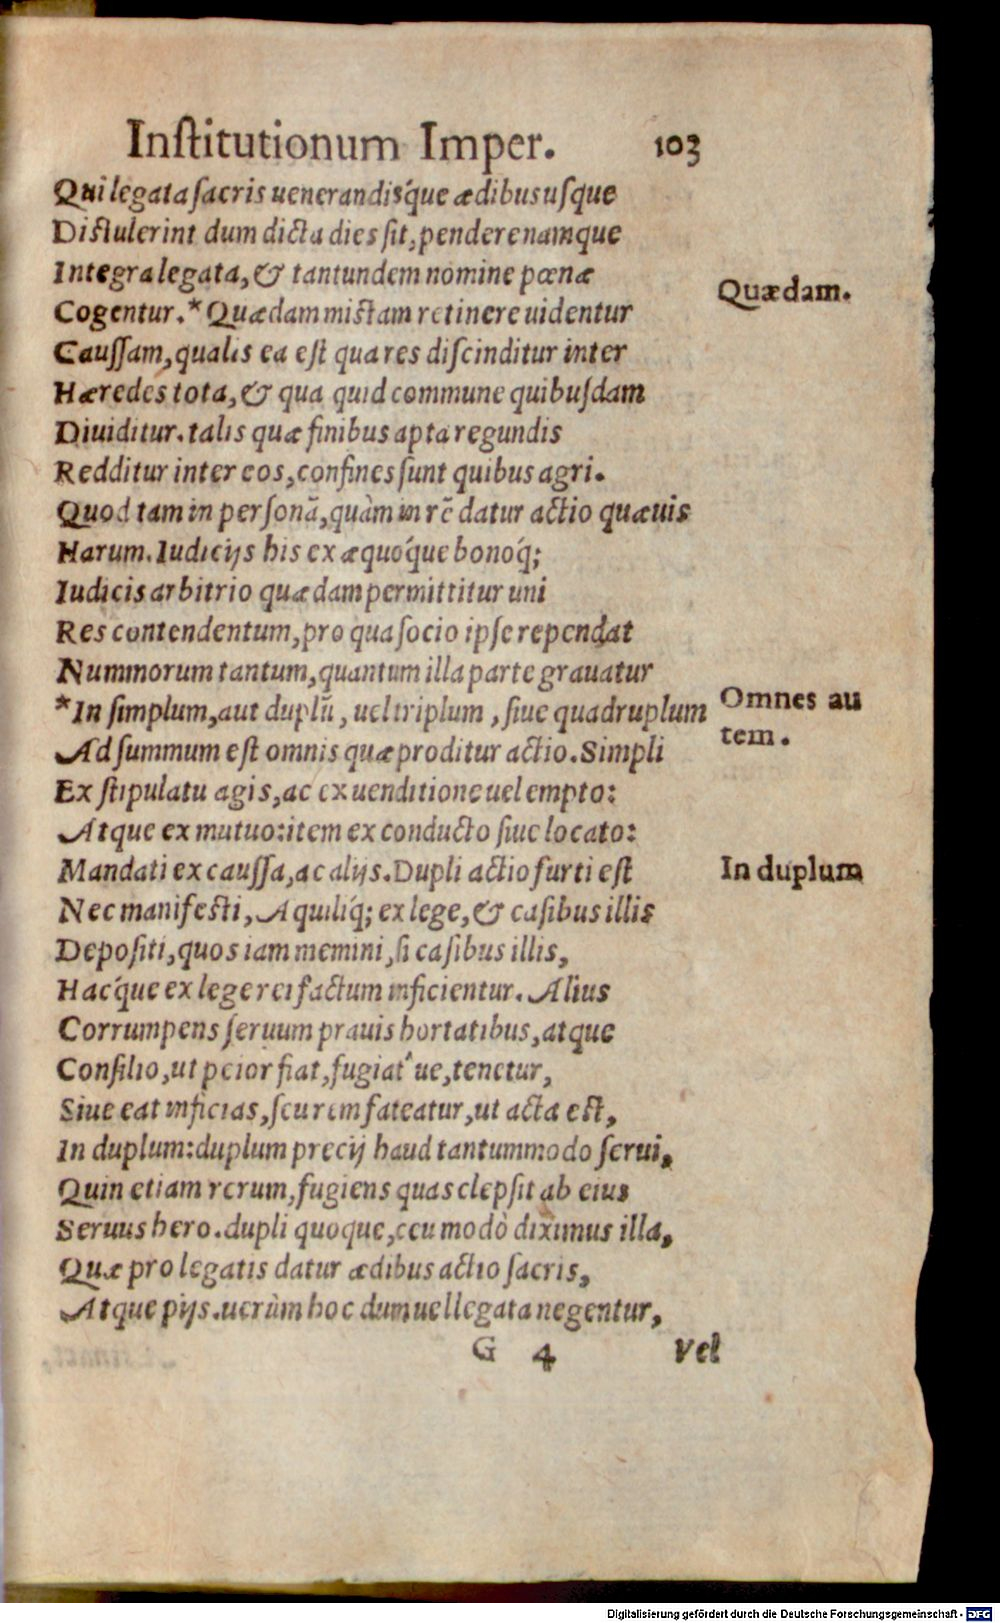 Inſtitutionum Imper. 103
Qui legata ſacris uenerandis´que ædibus uſque
Diſtulerint dum dicta dies ſit, pendere namque
Integra legata, & tantundem nomine pœnæ
Quædam.
Cogentur. * Quædam miſtam retinere uidentur
Cauſſam, qualis ea eſt qua res diſcinditur inter
Hæredes tota, & qua quid commune quibuſdam
Diuiditur. talis quæ finibus apta regundis
Redditur inter eos, confines ſunt quibus agri.
Quod tam in perſonã, quàm in rẽ datur actio quæuis
Harum. Iudicijs his ex æquo´que bonoq́;
Iudicis arbitrio quædam permittitur uni
Res contendentum, pro qua ſocio ipſe rependat
Nummorum tantum, quantum illa parte grauatur
Omnes au
tem.
*In ſimplum, aut duplũ, uel triplum, ſiue quadruplum
Ad ſummum eſt omnis quæ proditur actio. Simpli
Ex ſtipulatu agis, ac ex uenditione uel empto:
Atque ex mutuo: item ex conducto ſiue locato:
In duplum
Mandati ex cauſſa, ac alijs. Dupli actio furti eſt
Nec manifeſti, Aquiliq́; ex lege, & caſibus illis
Depoſiti, quos iam memini, ſi caſibus illis,
Hac´que ex lege rei factum inficientur. Alius
Corrumpens ſeruum prauis hortatibus, atque
Conſilio, ut peior fiat, fugiat´ue, tenetur,
Siue eat inficias, ſeu rem fateatur, ut acta eſt,
In duplum: duplum precij haud tantummodo ſerui,
Quin etiam rerum, fugiens quas clepſit ab eius
Seruus hero. dupli quoque, ceu modò diximus illa,
Quæ pro legatis datur ædibus actio ſacris,
Atque pijs. uerùm hoc dum uel legata negentur,
G 4 Vel
Digitalisierung gefördert durch die Deutsche Forschungsgemeinschaft - DFG